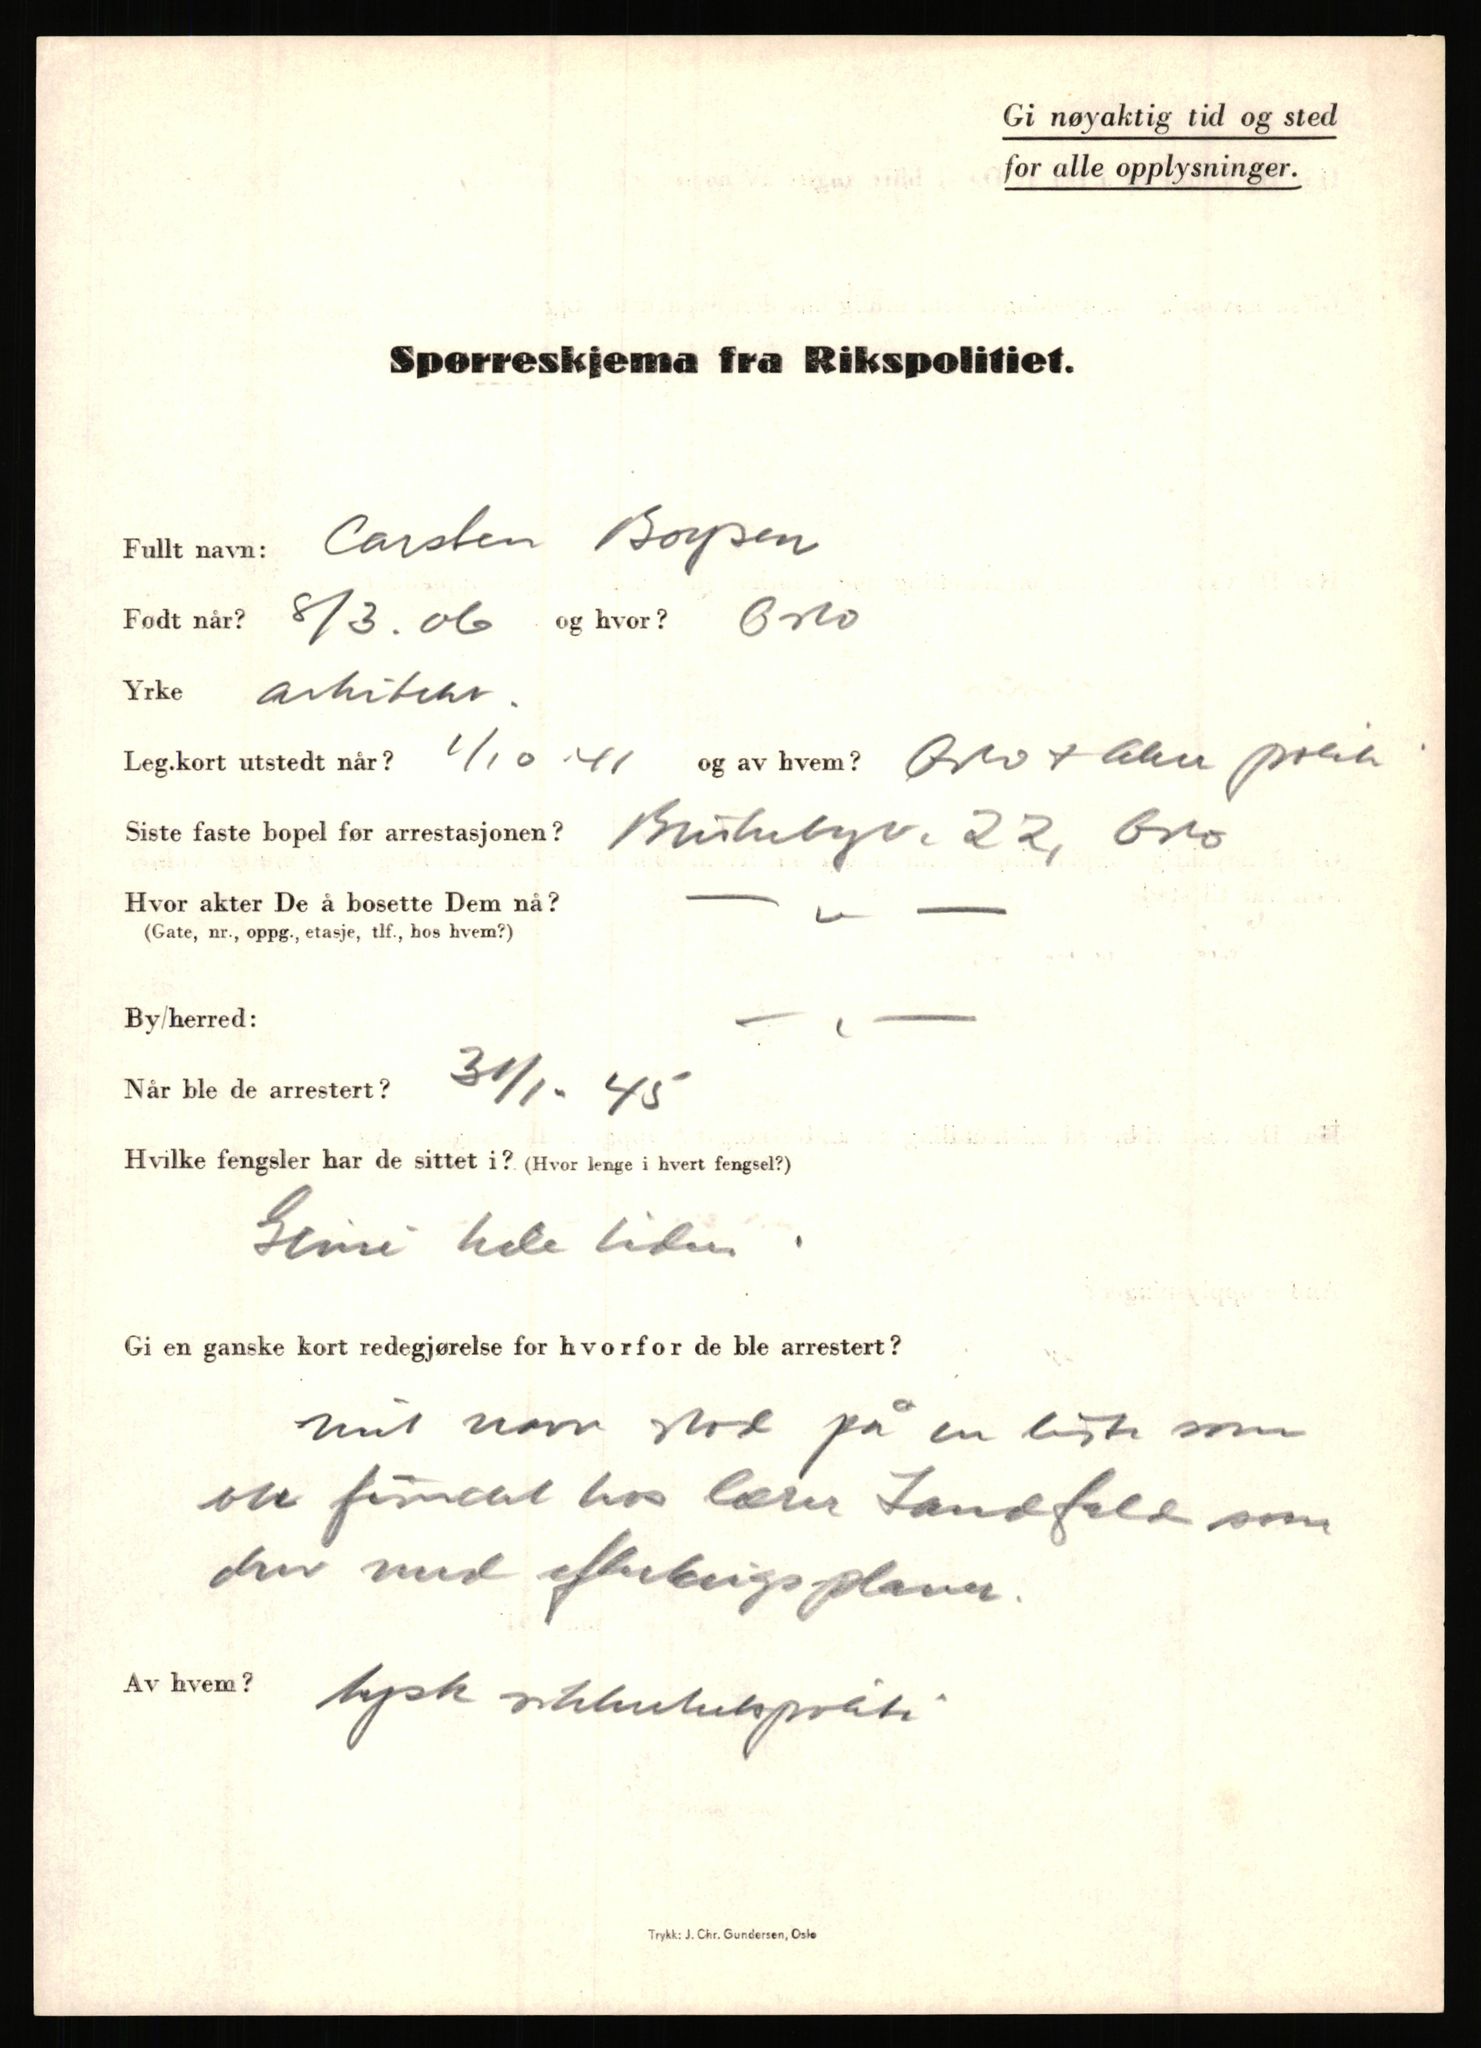 Gi nøyaktig tid og sted
for alle opplysninger.
Spørreskjema fra Rikspolitiet.
Fullt navn: Carsten Boysen
Født når? 8/3.06 og hvor? Oslo
Yrke arkitekt.
Leg.kort utstedt når? 1/10 41 og av hvem? Oslo + Aker politi
Siste faste bopel før arrestasjonen? 22, Oslo
Hvor akter De å bosette Dem nå? — " —
(Gate, nr., oppg., etasje, tlf., hos hvem?)
By/herred: — " —
Når ble de arrestert? 31/1. 45
Hvilke fengsler har de sittet i? (Hvor lenge i hvert fengsel?)
Grini hele tiden.
Gi en ganske kort redegjørelse for hvorfor de ble arrestert?
mit navn stod på en liste som
ble fundet hos lærer Landfald som
drev med
Av hvem? tysk sikkerhetspoliti
Trykk: J. Chr. Gundersen, Oslo